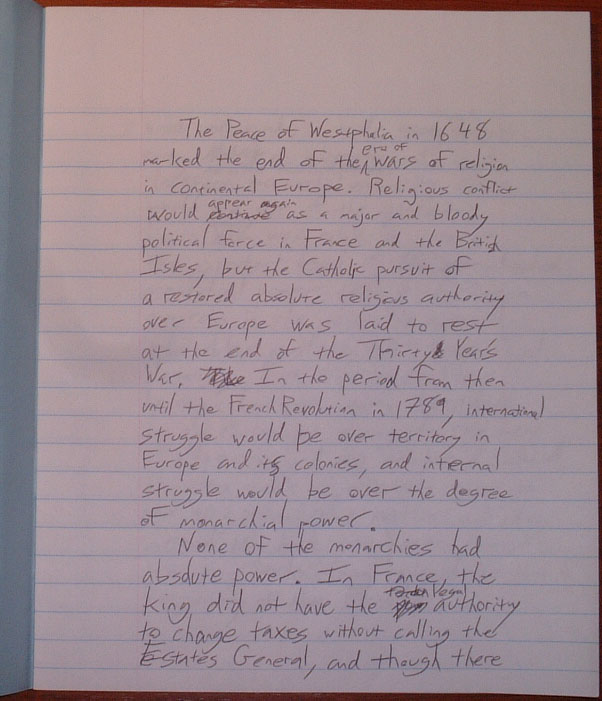 The Peace of Westphalia in 1648
era of
marked the end of the wars of religion
in continental Europe. Religious conflict
appear again
would continue as a major and bloody
political force in France and the British
Isles, but the Catholic pursuit of
a restored absolute religious authority
over Europe was laid to rest
at the end of the Thirty Year's
War. In the period from then
until the French Revolution in 1789, international
struggle would be over territory in
Europe and its colonies, and internal
struggle would be over the degree
of monarchial power.
None of the monarchies had
absolute power. In France, the
legal
king did not have the authority
to change taxes without calling the
Estates General, and though there